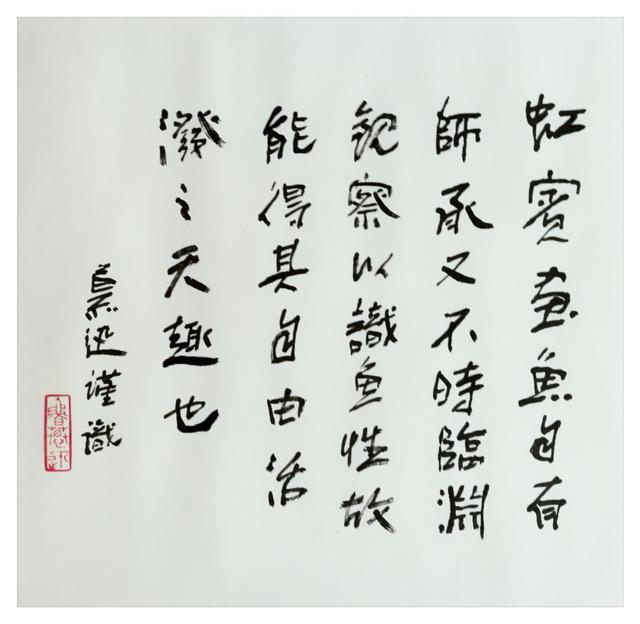 虹賓画魚自有
師承又不時臨淵
観察以識魚性故
能得其自由活
潑之天趣也
迅謹識